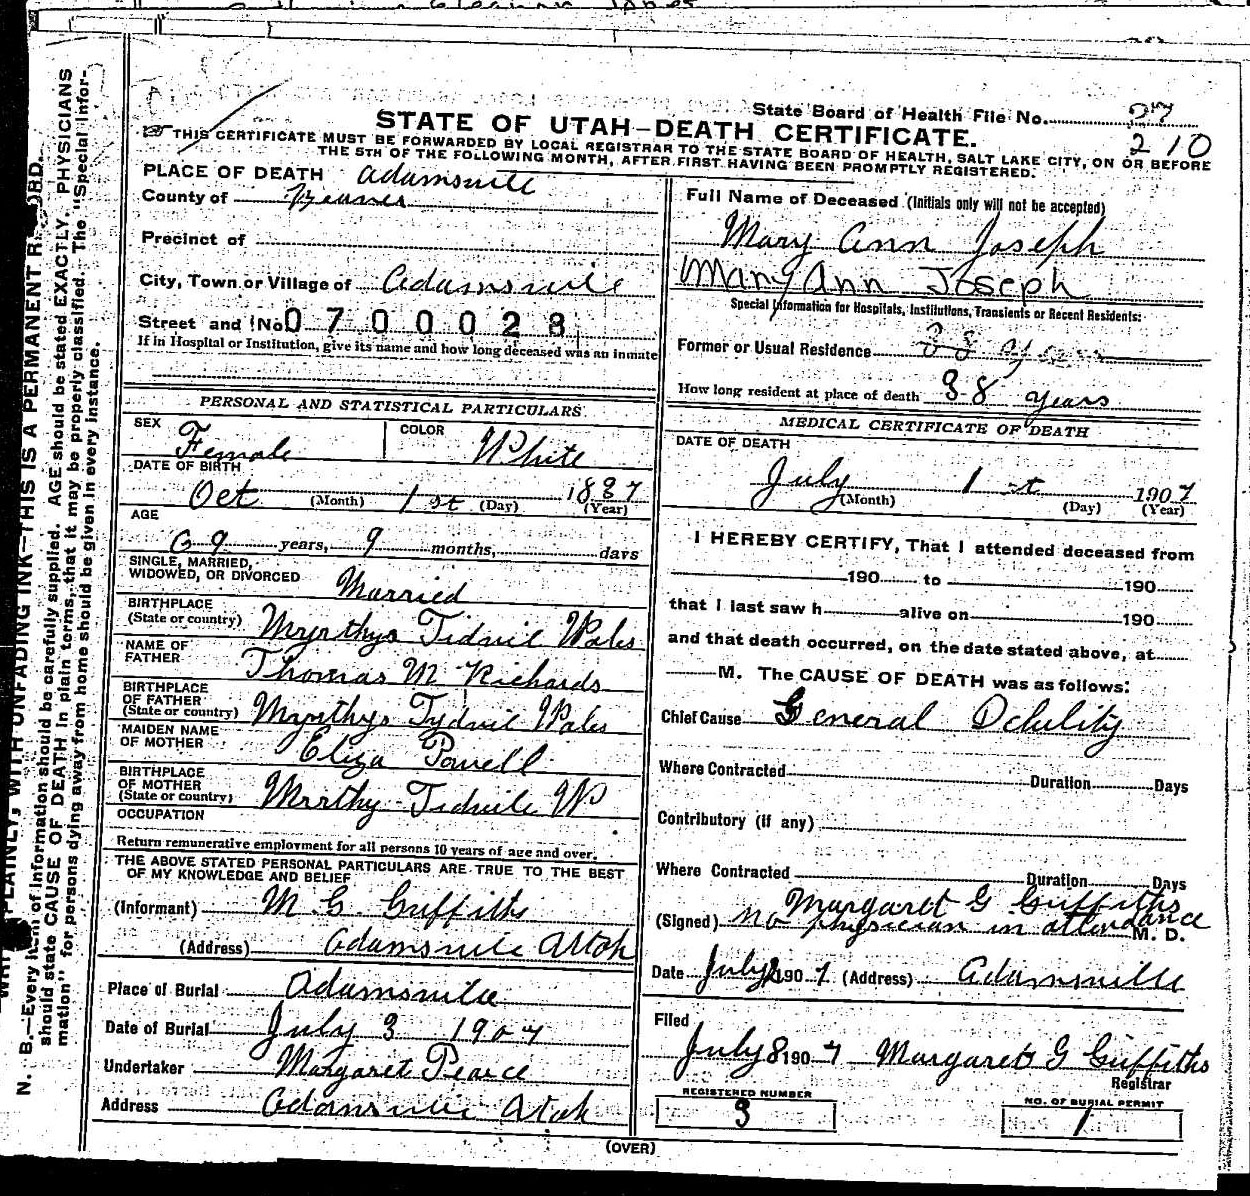 State Board of Health File No. 27
210
STATE OF UTAH—DEATH CERTIFICATE.
THIS CERTIFICATE MUST BE FORWARDED BY LOCAL REGISTRAR TO THE STATE BOARD OF HEALTH, SALT LAKE CITY, ON OR BEFORE
THE 5TH OF THE FOLLOWING MONTH, AFTER FIRST HAVING BEEN PROMPTLY REGISTERED.
PLACE OF DEATH Adamsville
County of Beaver
Precinct of
City, Town or Village of Adamsville
Street and No. 0700028
If in Hospital or Institution, give its name and how long deceased was an inmate
PERSONAL AND STATISTICAL PARTICULARS
SEX Female COLOR White
DATE OF BIRTH
Oct (Month) 1st (Day) 1837 (Year)
AGE
69 years, 9 months, days
SINGLE, MARRIED,
WIDOWED, OR DIVORCED Married
BIRTHPLACE
(State or country) Myrthys Tidvil Wales
NAME OF
FATHER Thomas M Richards
BIRTHPLACE
OF FATHER
(State or country) Myrthys Tydvil Wales
MAIDEN NAME
OF MOTHER Eliza Powell
BIRTHPLACE
OF MOTHER
(State or country) Mrrthy Tidvile W
OCCUPATION
Return remunerative employment for all persons 10 years of age and over.
THE ABOVE STATED PERSONAL PARTICULARS ARE TRUE TO THE BEST
OF MY KNOWLEDGE AND BELIEF
(Informant) M. G. Griffiths
(Address) Adamsville Utah
Place of Burial Adamsville
Date of Burial July 3 1907
Undertaker Margaret Pearce
Address Adamsville Utah
Full Name of Deceased (Initials only will not be accepted)
Mary Ann Joseph
Mary Ann Joseph
Special Information for Hospitals, Institutions, Transients or Recent Residents:
Former or Usual Residence 38 years
How long resident at place of death 38 years
MEDICAL CERTIFICATE OF DEATH
DATE OF DEATH
July (Month) 1st (Day) 1907 (Year)
I HEREBY CERTIFY, That I attended deceased from
190 to 190
that I last saw h alive on 190
and that death occurred, on the date stated above, at
M. The CAUSE OF DEATH was as follows:
Chief Cause General Debility
Where Contracted Duration Days
Contributory (if any)
Where Contracted Duration Days
Margaret G Griffiths
(Signed) no physician in attendance M. D.
Date July 1907 (Address) Adamsville
Filed
July 8 1907 Margaret G Griffiths
Registrar
REGISTERED NUMBER
3
NO. OF BURIAL PERMIT
1
(OVER)
PLAINLY, WITH UNFADING INK—THIS IS A PERMANENT RECORD.
N. B.—Every item of information should be carefully supplied. AGE should be stated EXACTLY. PHYSICIANS
should state CAUSE OF DEATH in plain terms, that it may be properly classified. The "Special Infor-
mation" for persons dying away from home should be given in every instance.